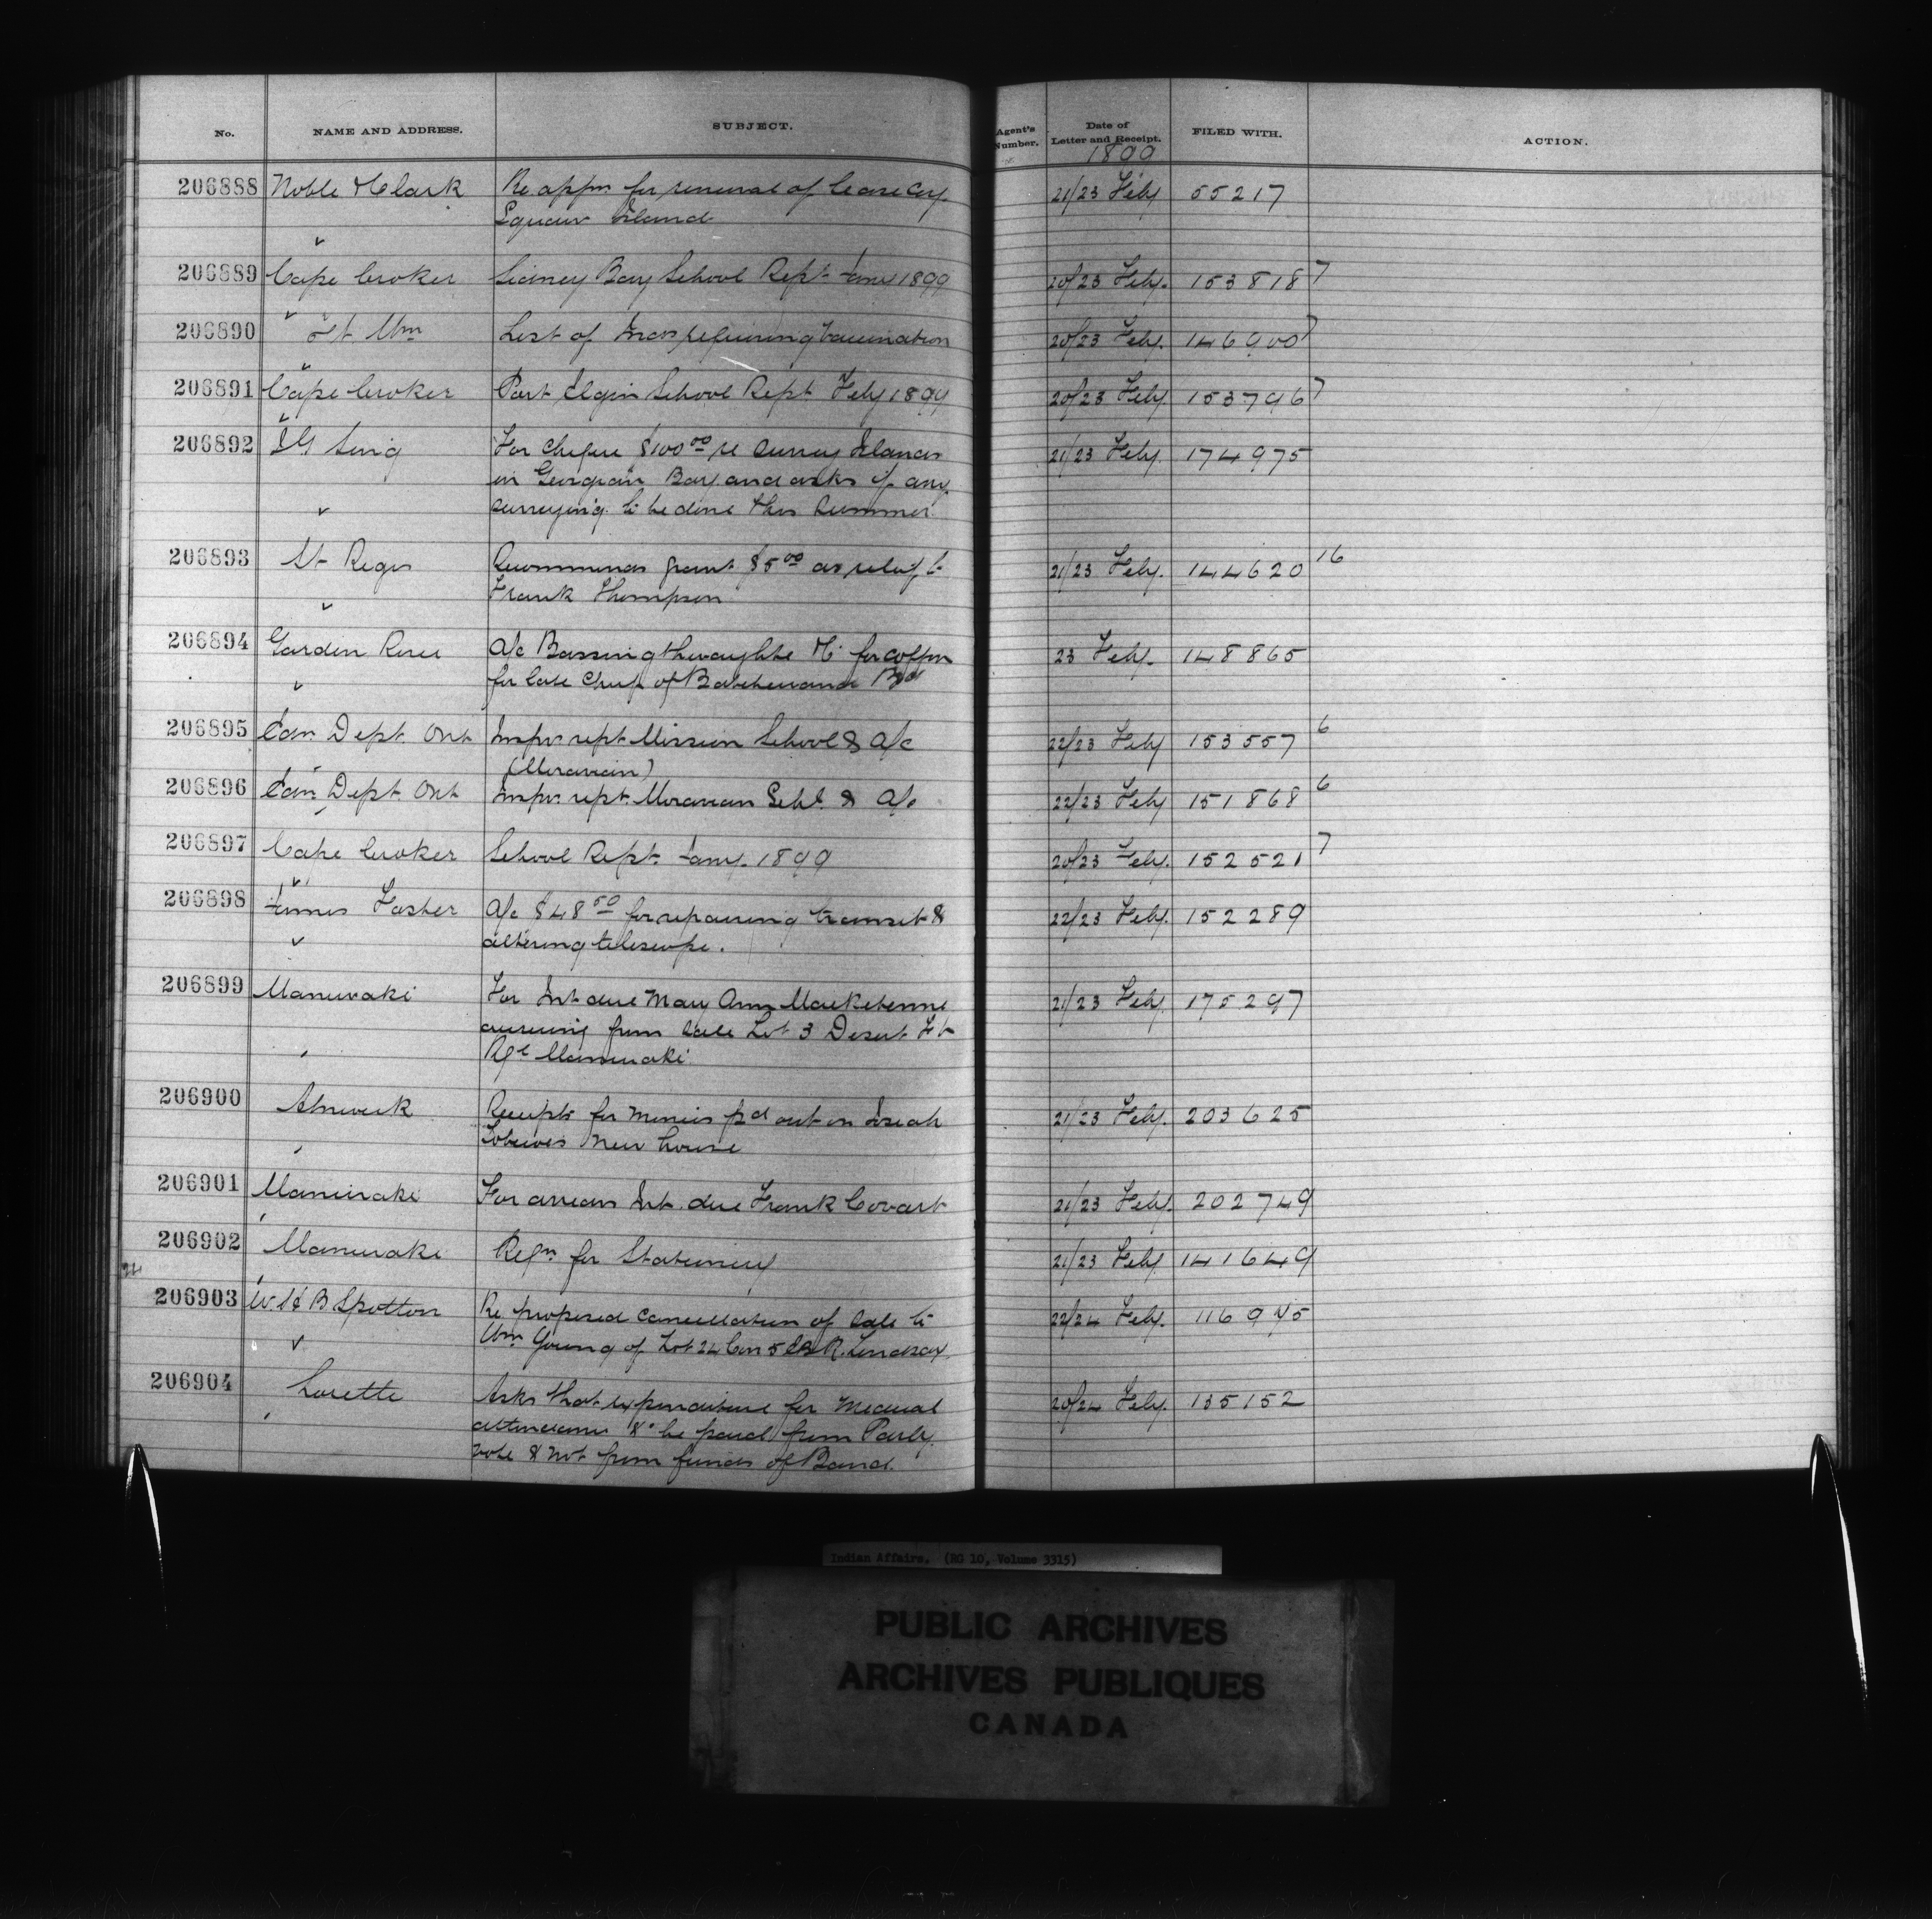 No. NAME AND ADDRESS. SUBJECT. Agent's Number. Date of Letter and Receipt. FILED WITH. ACTION.
1899
206888 Noble & Clark Re appn for renewal of lease Squaw Island 21/23 Feby 55217
206889 Cape Croker Sidney Bay School Rept Jany 1899 20/23 Feby. 153818 7
206890 Ft Wm List of Inds requiring Vaccination 20/23 Feby. 146900 7
206891 Cape Croker Port Elgin School Rept Feby 1899 20/23 Feby. 153796 7
206892 For cheque $100 00 re survey Islands 21/23 Feby. 174975
in Georgian Bay and asks if any
surveying to be done this summer
206893 St Regis Recommends grant $5 00 as relief to 21/23 Feby. 144620 16
Frank Thompson
206894 Garden River a/c Bassingthwaighte for coffin 23 Feby. 148865
for late Chief of Batchewana Bd
206895 Edn. Dept. Ont Inspr rept Mission School & a/c 22/23 Feby 153557 6
(Moravian)
206896 Edn. Dept. Ont Inspr. rept. Moravian Schl. & a/c 22/23 Feby 151868 6
206897 Cape Croker School Rept. Jany. 1899 20/23 Feby. 152521 7
206898 James Foster a/c $48 50 for repairing transit & 22/23 Feby. 152289
altering telescope.
206899 Maniwaki For Int due Mary Ann 21/23 Feby. 175297
accruing from sale Lot 3 Desert Ft
Maniwaki
206900 Alnwick Receipts for monies pd out on 21/23 Feby. 203625
new house
206901 Maniwaki For arrears Int. due Frank 21/23 Feby. 202749
206902 Maniwaki Reqn for Stationery 21/23 Feby. 141649
24
206903 B Spotton Re proposed cancellation of sale to 22/24 Feby. 116945
Wm Young of Lot 24 Con 5 EBR. Lindsay
206904 Lorette Asks that expenditure for medical 20/24 Feby. 135152
attendance &c be paid from Parly.
vote & not from funds of Band.
Indian Affairs. (RG 10, Volume 3315)
PUBLIC ARCHIVES
ARCHIVES PUBLIQUES
CANADA